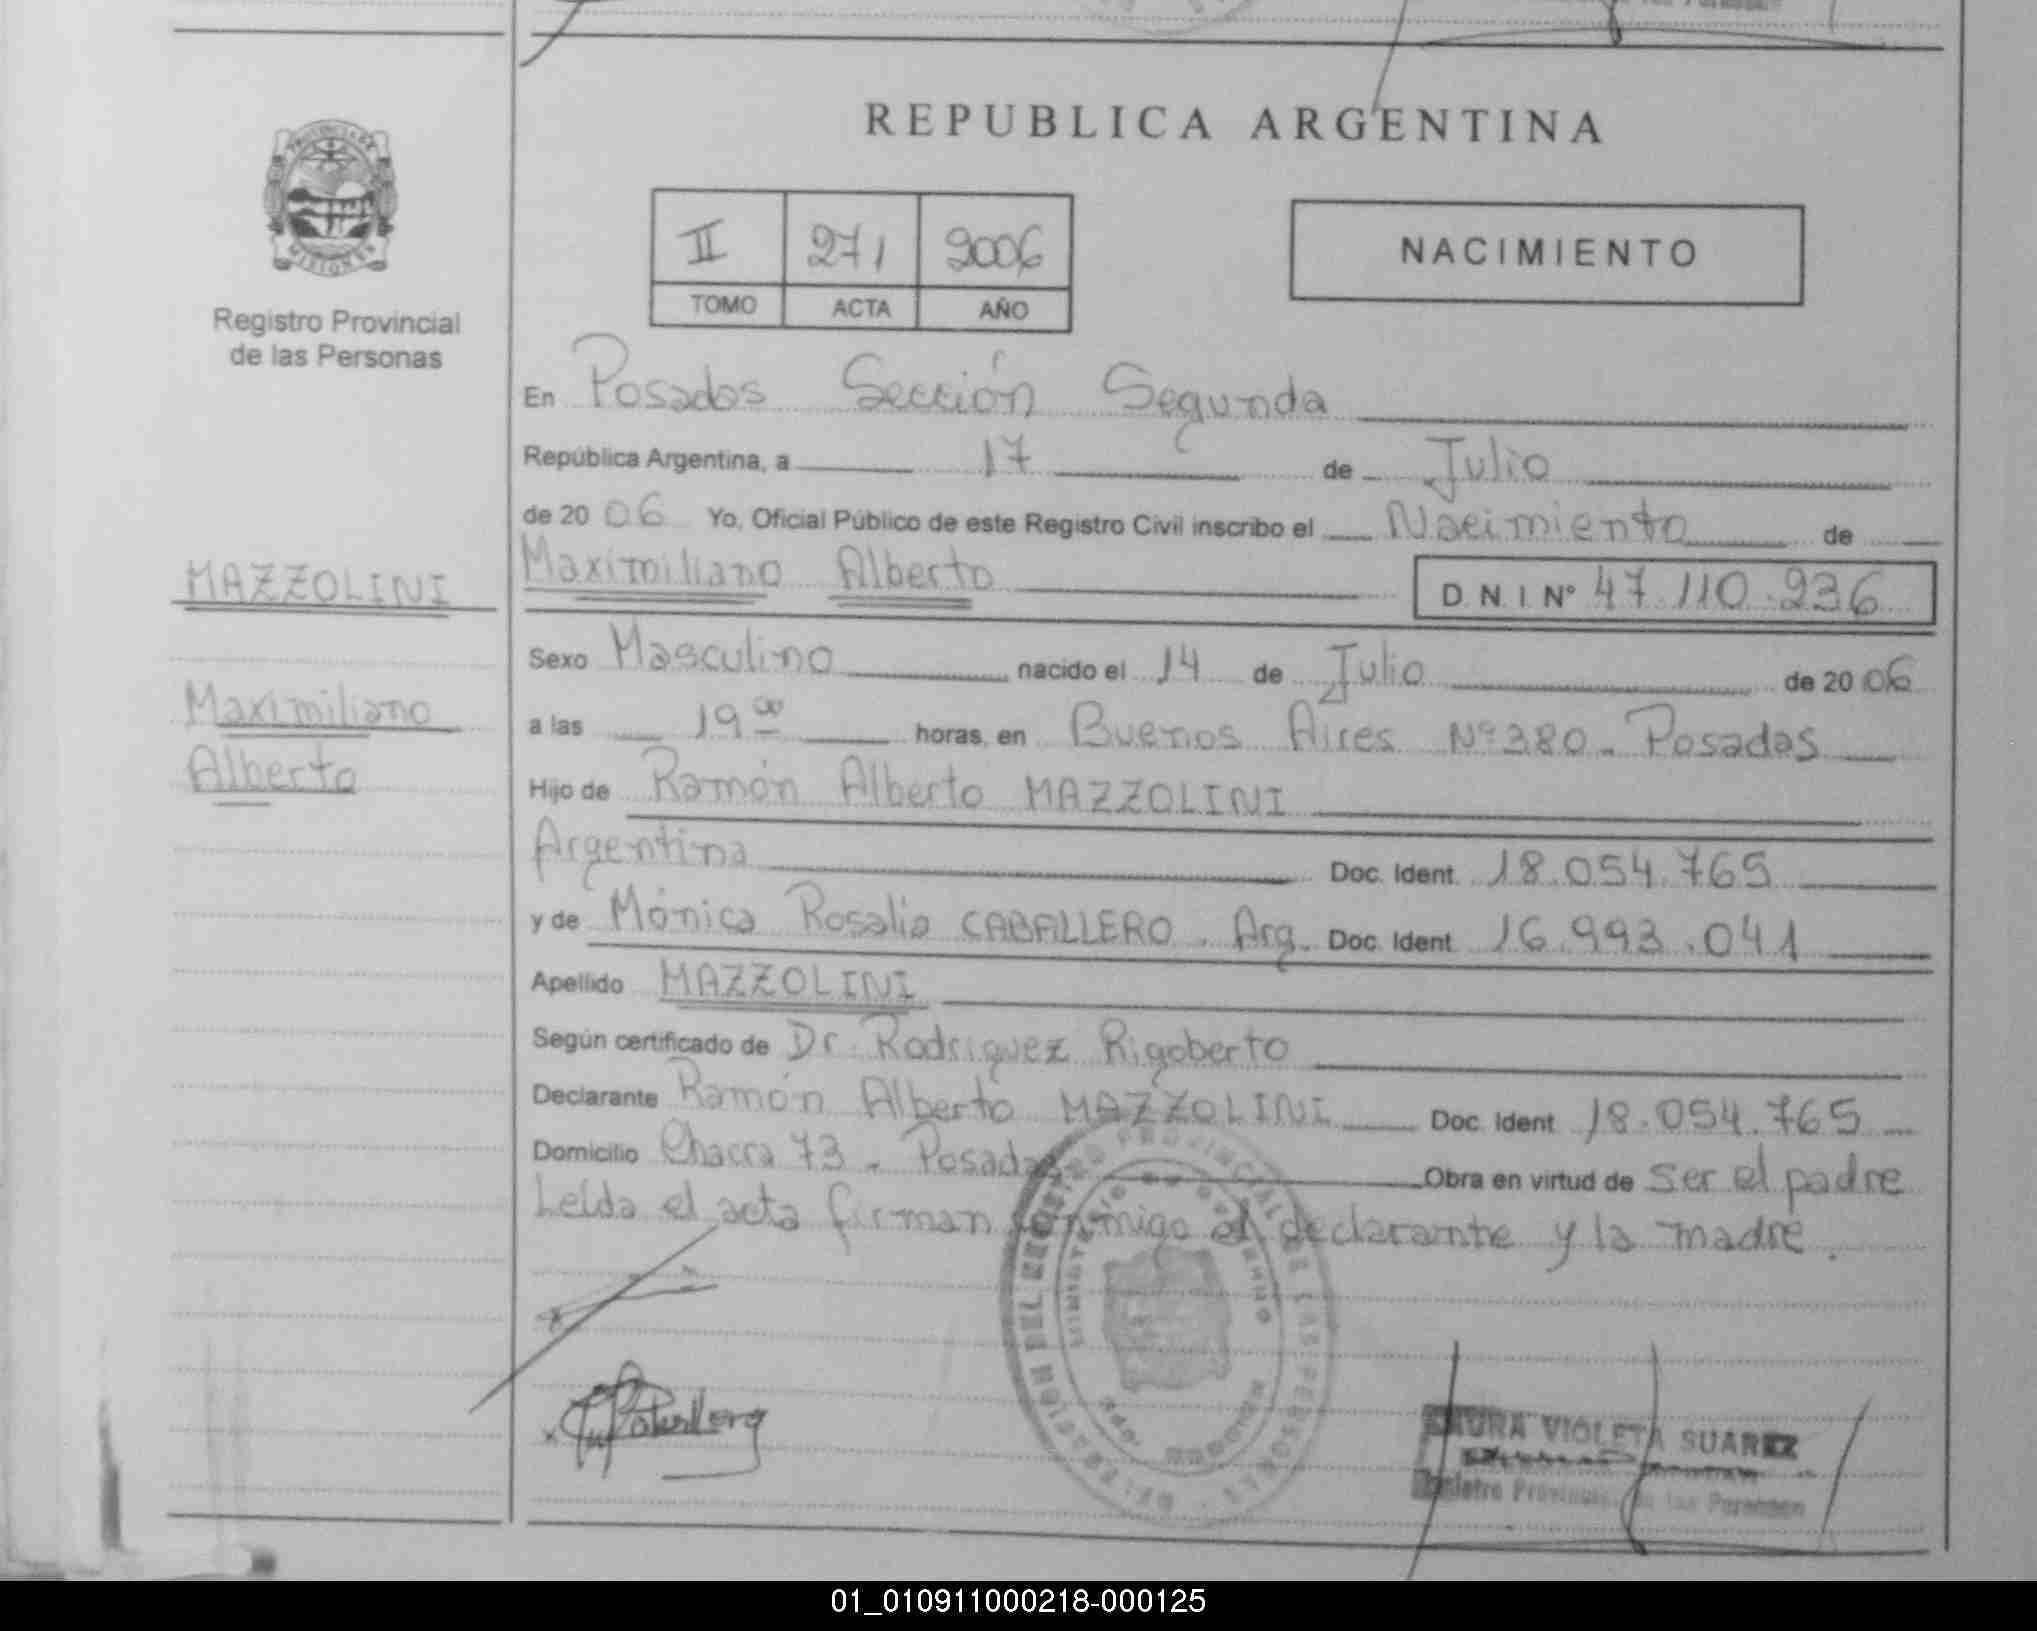 REPUBLICA ARGENTINA
PROVINCIA DE
MISIONES
Registro Provincial
de las Personas
II 271 2006
TOMO ACTA AÑO
NACIMIENTO
En Posadas Sección Segunda
República Argentina, a 17 de Julio
de 2006 Yo, Oficial Público de este Registro Civil inscribo el Nacimiento de
MAZZOLINI
Maximiliano Alberto D.N.I. Nº 47.110.236
Sexo Masculino nacido el 14 de Julio de 2006
Maximiliano
Alberto
a las 19 00 horas, en Buenos Aires Nº 380 - Posadas
Hijo de Ramón Alberto MAZZOLINI
Argentina Doc. Ident. 18.054.765
y de Mónica Rosalia CABALLERO. Arg. Doc. Ident. 16.993.041
Apellido MAZZOLINI
Según certificado de Dr. Rodriguez Rigoberto
Declarante Ramón Alberto MAZZOLINI Doc. Ident 18.054.765
Domicilio Chacra 73 - Posadas Obra en virtud de ser el padre
Leída el acta firman conmigo el declarante y la madre.
DEL REGISTRO PROVINCIAL DE LAS PERSONAS
MINISTERIO DE GOBIERNO
MISIONES
LAURA VIOLETA SUAREZ
Registro Provincial de las Personas
01_010911000218-000125